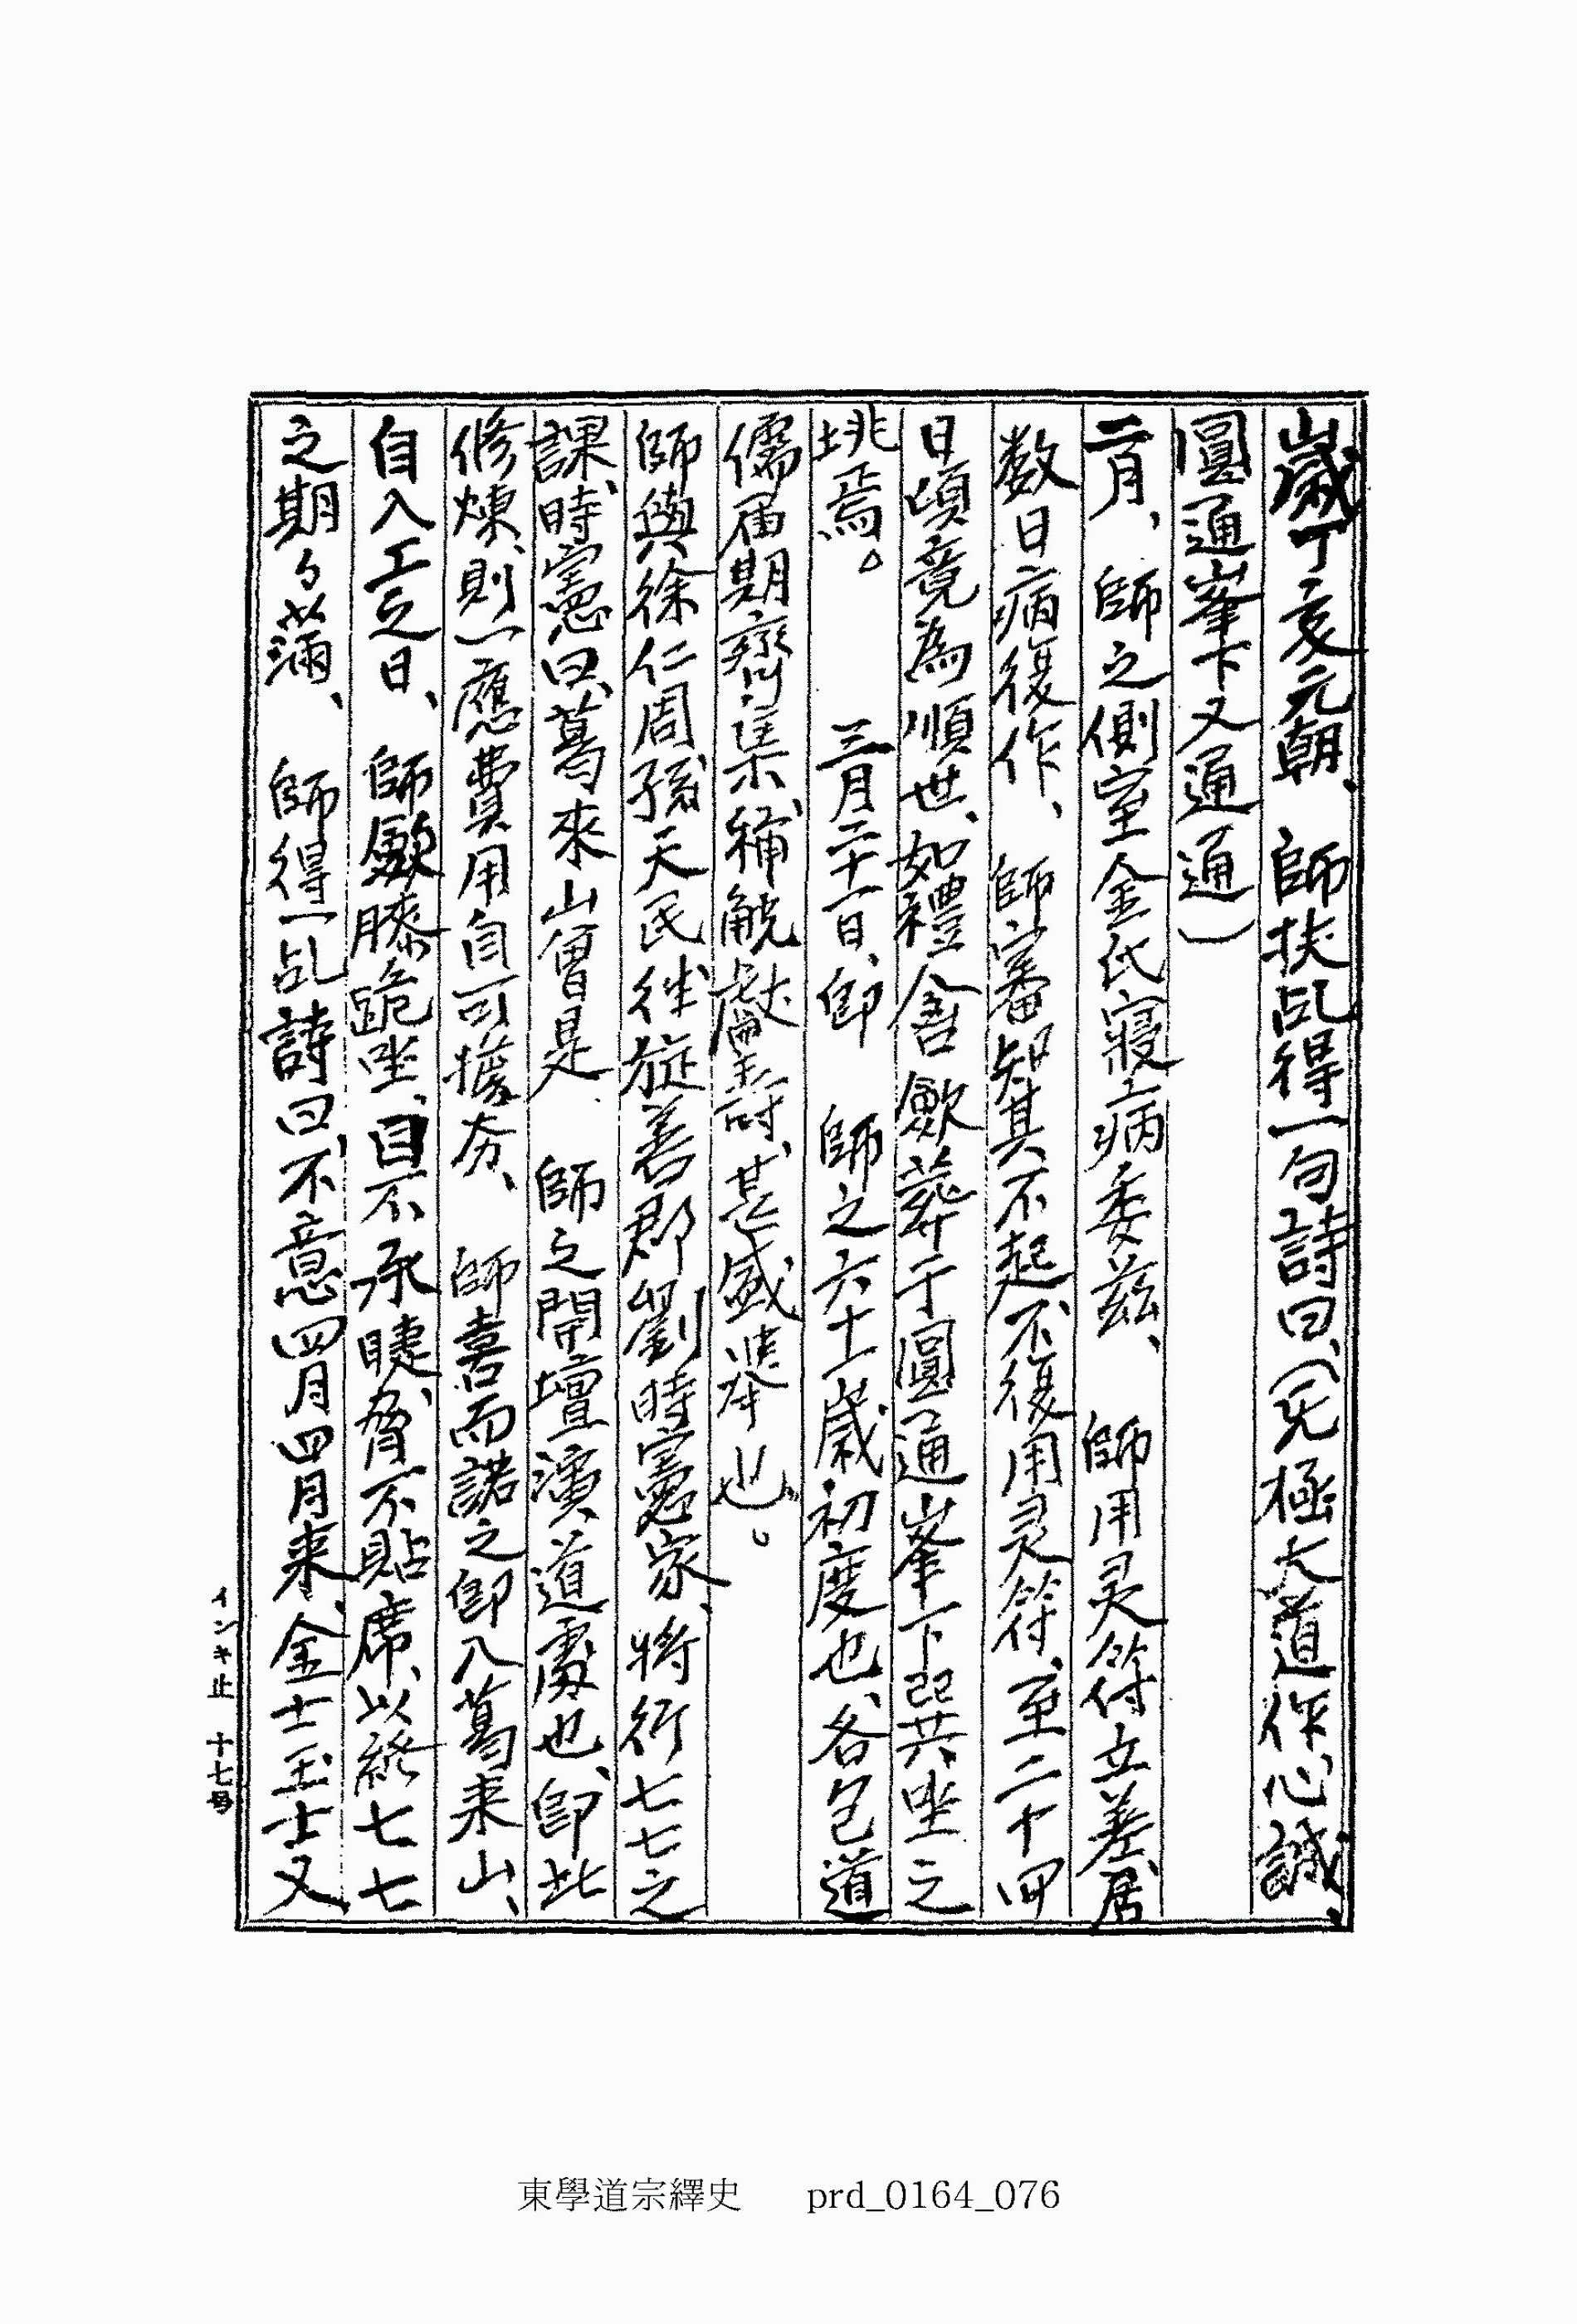 歲丁亥元朝、　師扶乩得一句詩曰、（无極大道作心誠、
圓通峯下又通通）
二月、　師之側室金氏寢病委玆、　師用灵符立差、居
数日病復作、　師審知其不起、不復用灵符、至二十四
日頃竟為順世、如禮含歛葬于圓通峯下巽坐之
垗焉。　三月二十一日、卽　師之六十一歲初度也、各包道
儒届期齊集、稱觥獻壽、甚盛擧也。
師與徐仁周孫天民往旌善郡劉時憲家、將行七七之
課、時憲曰、葛來山曾是　師之開壇演道處也、卽此
修煉、則一應費用自可擔夯、　師喜而諾之卽入葛来山、
自入工之日、　師歛膝跪坐、目不承睫、脅不貼席、以終七七
之期、々旣滿、　師得一乩詩曰、不意四月四月来、金士玉士又
インキ止　十七号
東學道宗繹史　prd_0164_076